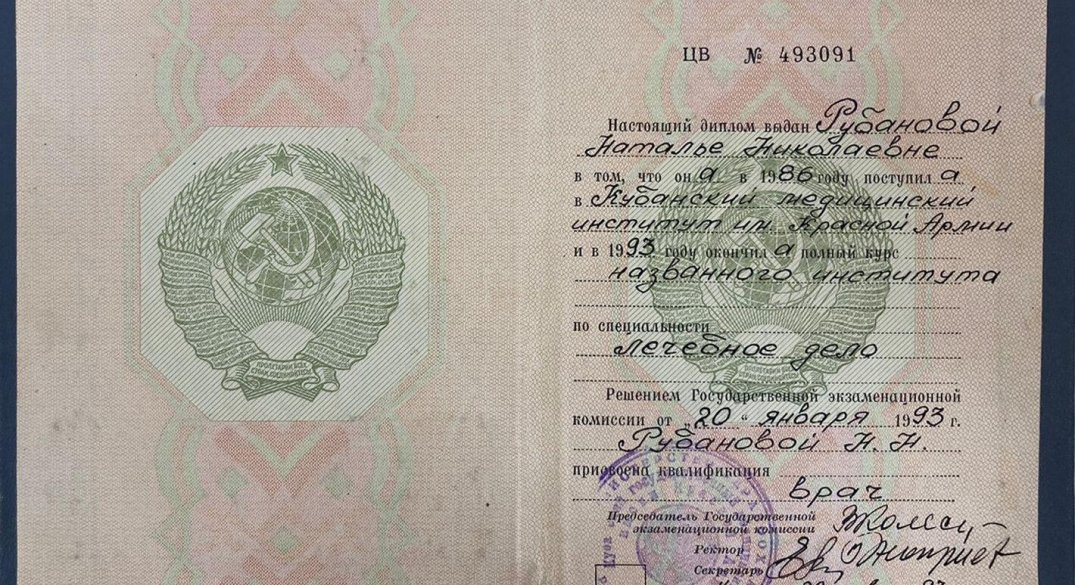 ПРОЛЕТАРИИ ВСЕХ
СТРАН, СОЕДИНЯЙТЕСЬ!
ЦВ № 493091
Настоящий диплом выдан Рубановой
Наталье Николаевне
в том, что он а в 1986 году поступил а
в Кубанский медицинский
институт им. Красной Армии
и в 1993 году окончил а полный курс
названного института
по специальности
лечебное дело
Решением Государственной экзаменационной
комиссии от „20“ января 1993 г.
Рубановой Н. Н.
присвоена квалификация
врач
Председатель Государственной
экзаменационной комиссии
Ректор
Секретарь